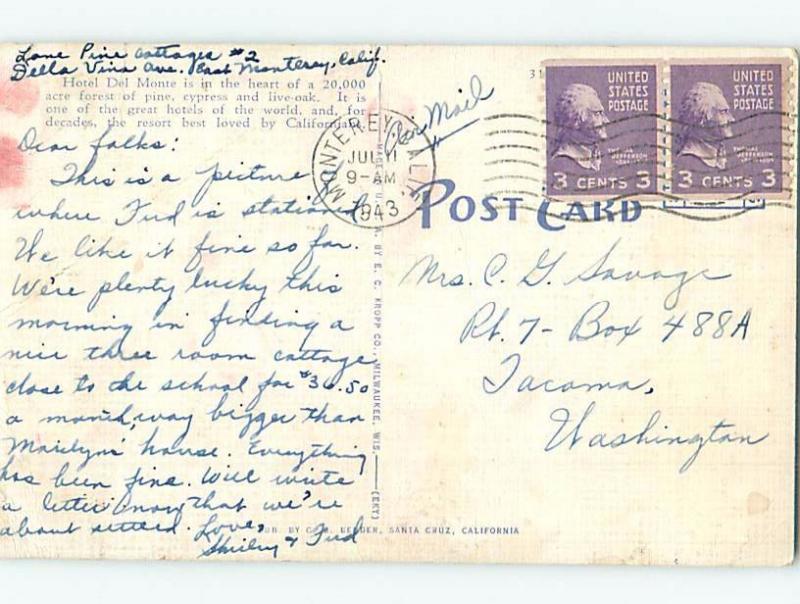 Lone Pine Cottages #2
Della Vina Ave. East Monterey, Calif.
Hotel Del Monte is in the heart of a 20,000
acre forest of pine, cypress and live-oak. It is
one of the great hotels of the world, and, for
decades, the resort best loved by Californians.
Dear folks:
This is a picture
where Fred is stationed
We like it fine so far.
We're plenty lucky this
morning in finding a
nice three room cottage
close to the school for $36.50
a month, way bigger than
Marilyn's house. Everything
has been fine. Will write
a letter now that we're
about settled. Love,
Shirley & Fred
PUB. BY SANTA CRUZ, CALIFORNIA
BY E. C. KROPP CO., MILWAUKEE, WIS.
(EKY)
31
Air Mail
MONTEREY CALIF.
JUL 11
9-AM
1943
UNITED
STATES
POSTAGE
THOMAS
JEFFERSON
3 CENTS 3
UNITED
STATES
POSTAGE
THOMAS
JEFFERSON
3 CENTS 3
POST CARD
Mrs. C. G. Savage
Rt. 7 - Box 488A
Tacoma,
Washington